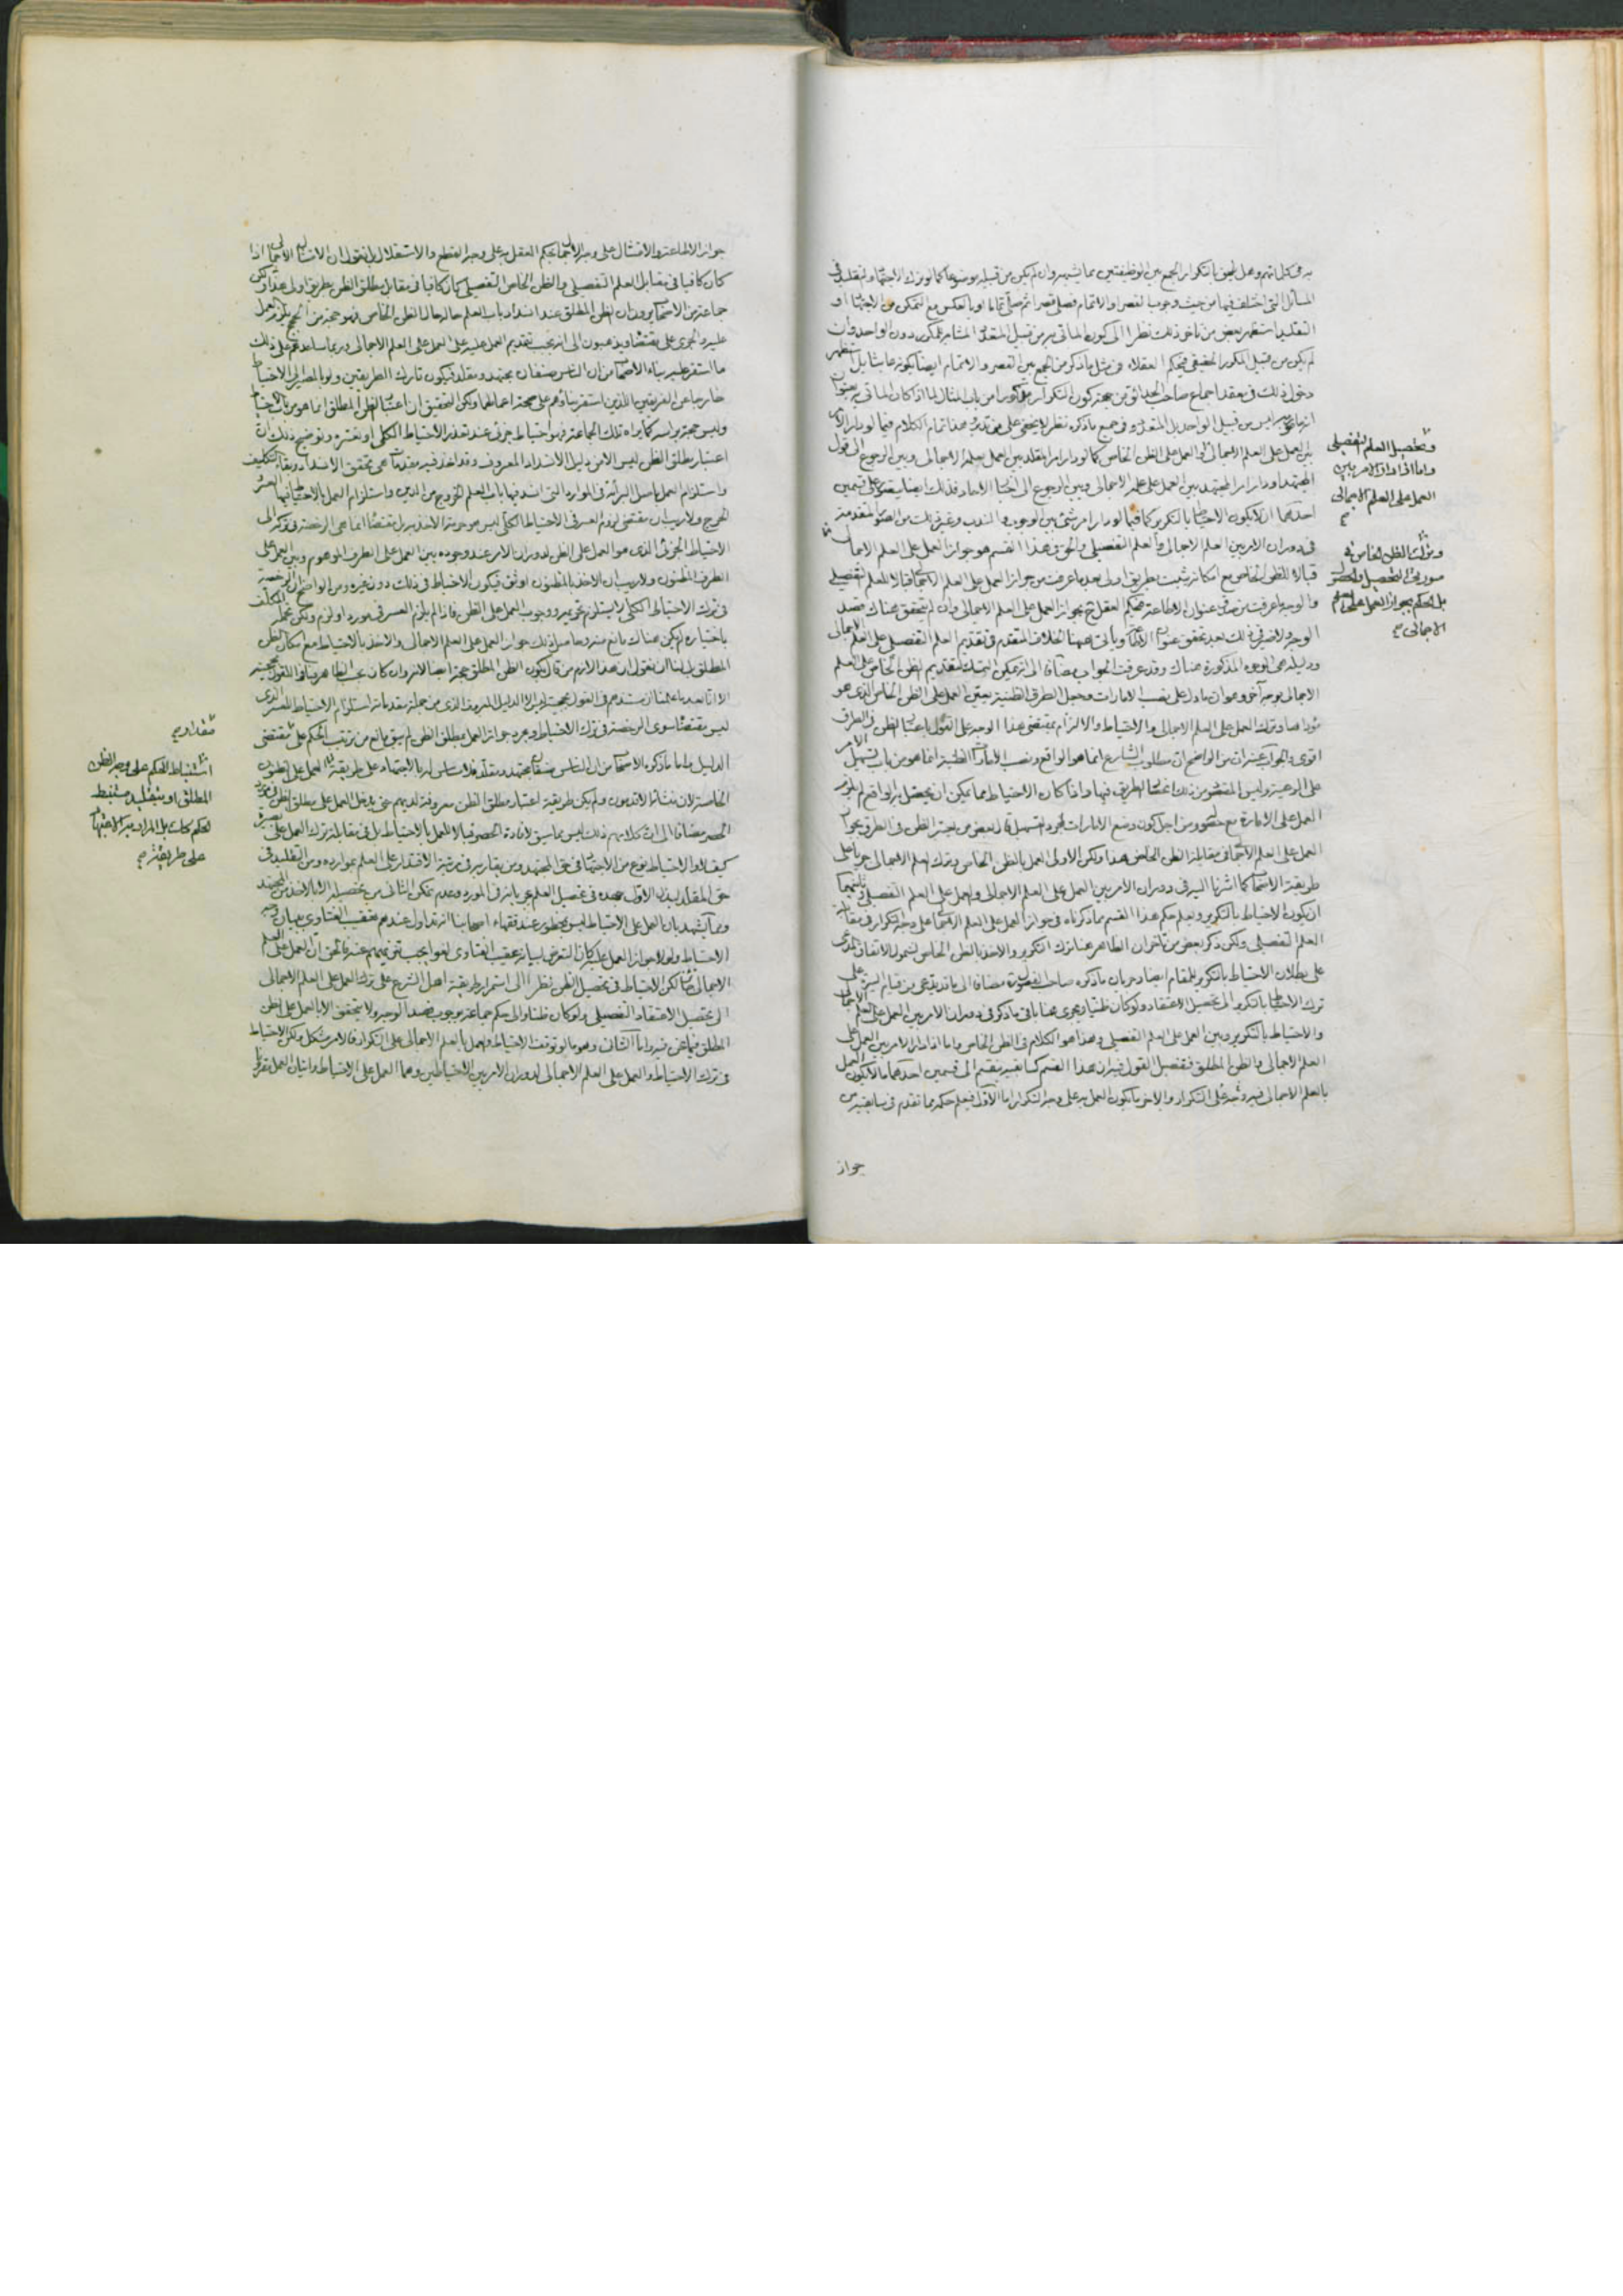 به في كلماتهم وهل يجوز بالتكرار الجمع بين الوظيفتين مما يشبهه وان لم يكن من قبيله موضوعا كما لو ترك الاجتهاد والتقليد في
المسائل التي اختلف فيها من حيث وجوب القصر والاتمام فصلى قصرا ثم صلى تماما او بالعكس مع التمكن من الاجتهاد او
التقليد استظهر بعض من تاخر ذلك نظرا الى كون الماتي به من قبيل المتعدد المشابه للمكرر دون الواحد وان
لم يكن من قبيل المكرر الحقيقي فيحكم العقلاء في مثل ما ذكر من الجمع بين القصر والاتمام ايضا بكونه عابثا بل استظهر
دخول ذلك في معقد اجماع صاحب الحدائق من جهة كون التكرار مذكورا من باب المثال لما اذا كان الماتي به بعنوان
ليس من قبيل الواحد بل المتعدد وفي جميع ما ذكره نظر لا يخفى على من تدبر هذا تمام الكلام فيما لو دار الامر
بين العمل على العلم الاجمالي او العمل على الظن الخاص كما لو دار امر المقلد بين العمل بعلمه الاجمالي وبين الرجوع الى قول
المجتهد او دار امر المجتهد بين العمل على علمه الاجمالي وبين الرجوع الى اخبار الاحاد فذلك ايضا يتصور على قسمين
احدهما ان لا يكون الاحتياط بالتكرير كما فيما لو دار امر شئ بين الوجوب والندب وغير ذلك من الصور المتقدمة
في دوران الامر بين العلم الاجمالي والعلم التفصيلي والحق في هذا القسم هو جواز العمل على العلم الاجمالي
قبالا للظن الخاص مع امكانه بطريق اولى بعد ما عرفت من جواز العمل على العلم الاجمالي قبالا للعلم التفصيلي
والوجه ما عرفت من صدق عنوان الاطاعة فيحكم العقل ح بجواز العمل على العلم الاجمالي وان لم يتحقق هناك قصد
الوجه ولا ضير في ذلك بعد تحقق عنوان الاطاعة وياتي هيهنا الخلاف المتقدم في تقديم العلم التفصيلي على العلم الاجمالي
ودليله هي الوجوه المذكورة هناك وقد عرفت الجواب مضافا الى انه يمكن التمسك لتقديم الظن الخاص على العلم
الاجمالي بوجه آخر وهو ان ما دل على نصب الامارات وجعل الطرق الظنية يعين العمل على الظن الخاص الذي هو
مؤداها وترك العمل على العلم الاجمالي والاحتياط والالتزام بمقتضى هذا الوجه على القول باعتبار الظن في الطرق
اقوى والجواب عنه ان من الواضح ان مطلوب الشارع انما هو الواقع ونصب الامارات الظنية انما هو من باب تسهيل الامر
على الرعية وليس المقصود من ذلك اغتشاش الطريق فيها واذا كان الاحتياط مما يمكن ان يحصل به الواقع لم يلزم
العمل على الامارة مع حصوله ومن اجل كون وضع الامارات لمجرد التسهيل قال بعض من يعتبر الظن في الطرق بجواز
العمل على العلم الاجمالي في مقابلة الظن الخاص هذا ولكن الاولى العمل بالظن الخاص وترك العلم الاجمالي جريا على
طريقة الاصحاب كما اشرنا اليه في دوران الامر بين العمل على العلم الاجمالي والعمل على العلم التفصيلي وثانيهما
ان يكون الاحتياط بالتكرير ويعلم حكم هذا القسم مما ذكرناه في جواز العمل على العلم الاجمالي على وجه التكرار في مقابلة
العلم التفصيلي ولكن ذكر بعض من تاخر ان الظاهر هنا ترك التكرير والاخذ بالظن الخاص لشمول الاتفاق المدعى
على بطلان الاحتياط بالتكرير للمقام ايضا وجريان ما ذكره صاحب مضافا الى ما قد يدعى من قيام السيرة على
ترك الاحتياط بالتكرير الى تحصيل الاعتقاد ولو كان ظنيا ويجري هنا باقي ما ذكر في دوران الامر بين العمل على العلم الاجمالي
والاحتياط بالتكرير وبين العمل على العلم التفصيلي وهذا هو الكلام في الظن الخاص واما اذا دار الامر بين العمل على
العلم الاجمالي والظن المطلق فتفصيل القول فيه ان هذا القسم كسابقيه ينقسم الى قسمين احدهما ما لا يكون العمل
بالعلم الاجمالي فيه وجه على التكرار والاخر ما يكون العمل به على وجه التكرار اما الاول فيعلم حكمه مما تقدم في سابقيه من
وتحصيل العلم التفصيلي
واما اذا دار الامر بين
العمل على العلم الاجمالي
وترك الظن الخاص في
صورتي التحصيل والحضور
بل الحكم بجواز العمل على العلم
الاجمالي صح
جواز
جواز الاطاعة والامتثال على وجه الاجمال بحكم العقل به على وجه القطع والاستقلال بل نقول ان الامتثال الاجمالي اذا
كان كافيا في مقابل العلم التفصيلي والظن الخاص التفصيلي كان كافيا في مقابل مطلق الظن بطريق اولى هذا ولكن
جماعة من الاصحاب يرون ان الظن المطلق عند انسداد باب العلم حاله حال الظن الخاص فهو حجة من الحجج يلزم العمل
عليه والجري على مقتضاه ويذهبون الى انه يجب تقديم العمل عليه على العمل على العلم الاجمالي وربما ساعدهم على ذلك
ما استقر عليه بناء الاصحاب من ان الناس صنفان مجتهد ومقلد فيكون تارك الطريقين ولو بالمصير الى الاحتياط
خارجا عن الفريقين اللذين استقر بناؤهم على صحة اعمالهما ولكن التحقيق ان اعتبار الظن المطلق انما هو من باب الاحتياط
وليس حجة براسه كما يراه تلك الجماعة فهو احتياط جزئي عند تعذر الاحتياط الكلي او تعسره وتوضيح ذلك ان
اعتبار مطلق الظن ليس الا من دليل الانسداد المعروف وقد اخذ فيه مقدمات هي تحقق الانسداد وبقاء التكليف
واستلزام العمل باصل البرائة في الموارد التي انسد فيها باب العلم الخروج من الدين واستلزام العمل بالاحتياط فيها العسر
والحرج ولا ريب ان مقتضى لزوم العسر في الاحتياط الكلي ليس هو حرمة الاخذ به بل مقتضاه انما هي الرخصة في تركه الى
الاحتياط الجزئي الذي هو العمل على الظن لدوران الامر عند وجوده بين العمل على الطرف الموهوم وبين العمل على
الطرف المظنون ولا ريب ان الاخذ بالمظنون اوثق فيكون الاحتياط في ذلك دون غيره ومن الواضح ان الرخصة
في ترك الاحتياط الكلي لا يستلزم تحريمه ووجوب العمل على الظن فاذا لم يلزم العسر في مورد او لزم ولكن تحمله المكلف
باختياره لم يكن هناك مانع منه وحاصل ذلك جواز العمل على العلم الاجمالي والاخذ بالاحتياط مع مكان الظن
المطلق بل لنا ان نقول ان هذا لازم من قال بكون الظن المطلق حجة ايضا لانه وان كان بحسب الظاهر مناوا للقول بحجيته
الا انا بعد ما علمنا ان مستندهم في القول بحجيته ليس الا الدليل المعروف الذي من جملة مقدماته استلزام الاحتياط للعسر الذي
ليس مقتضاه سوى الرخصة في ترك الاحتياط ومجرد جواز العمل بمطلق الظن لم يبق مانع من ترتب الحكم على مقتضى
الدليل واما ما ذكره الاصحاب من ان الناس صنفان مجتهد ومقلد فلا مساس له بالاجتهاد على طريقة العمل على الظنون
الخاصة لان من القدماء ولم يكن طريقة اعتبار مطلق الظن معروفة لديهم حتى يدخل العمل على مطلق الظن في مورد
الحصر مضافا الى ان كلامهم ذلك ليس مما سيق لافادة الحصر قبالا للعمل بالاحتياط بل في مقابلة ترك العمل على بصيرة
كيف لا والاحتياط نوع من الاجتهاد في حق المجتهد ومن يقاربه في مرتبة الاقتدار على العلم بموارده ومن التقليد في
حق المقلد لبذل الاول جهده في تحصيل العلم بجريانه في المورد وعدم تمكن الثاني من تحصيله الا بالاخذ من المجتهد
ومما يشهد بان العمل على الاحتياط ليس بمحظور عند فقهاء اصحابنا انه تداول عندهم تعقيب الفتاوى ببيان وجه
الاحتياط ولولا جواز العمل عليه كان التعرض لبيانه عقيب الفتاوى لغوا يجب تنزيههم عنه فالحق ان العمل على العلم
الاجمالي جائز لكن الاحتياط في تحصيل الظن نظرا الى استمرار طريقة اهل الشرع على ترك العمل على العلم الاجمالي
الى تحصيل الاعتقاد التفصيلي ولو كان ظنا والى حكم جماعة بوجوب قصد الوجه ولا يتحقق الا بالعمل على الظن
المطلق فيما نحن فيه واما الثاني وهو ما لو توقف الاحتياط والعمل بالعلم الاجمالي على التكرار فالامر مشكل ولكن الاحتياط
في ترك الاحتياط والعمل على العلم الاجمالي لدوران الامر بين الاحتياطين وهما العمل على الاحتياط واتيان العمل مقرونا
استنباط الحكم على وجه الظن
المطلق او بتقليد مستنبط
الحكم كذلك بل المراد به الاجتهاد
على طريقة صح